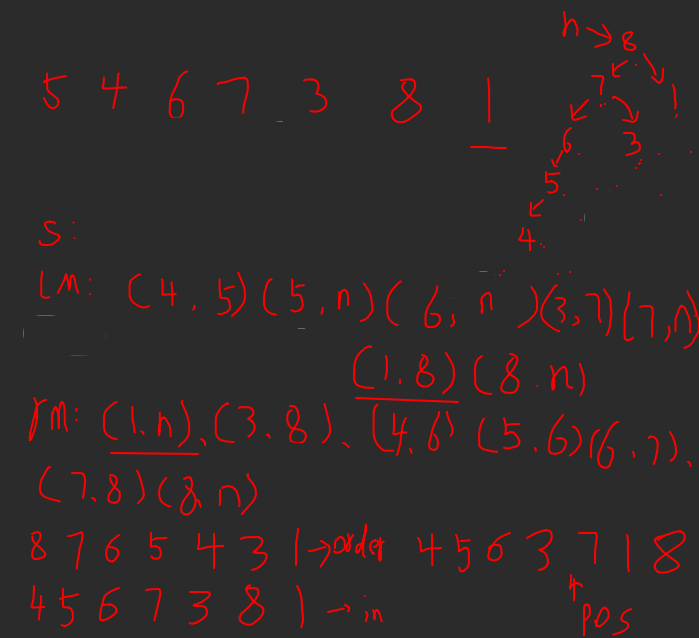 n → 8
5 4 6 7 3 8 1
7 1
6 3
5
4
S:
LM: (4,5) (5,n) (6,n) (3,7) (7,n)
(1,8) (8.n)
rM: (1.n), (3.8), (4,6) (5,6) (6,7),
(7.8) (8,n)
8 7 6 5 4 3 1 → order 4 5 6 3 7 1 8
4 5 6 7 3 8 1 → in pos